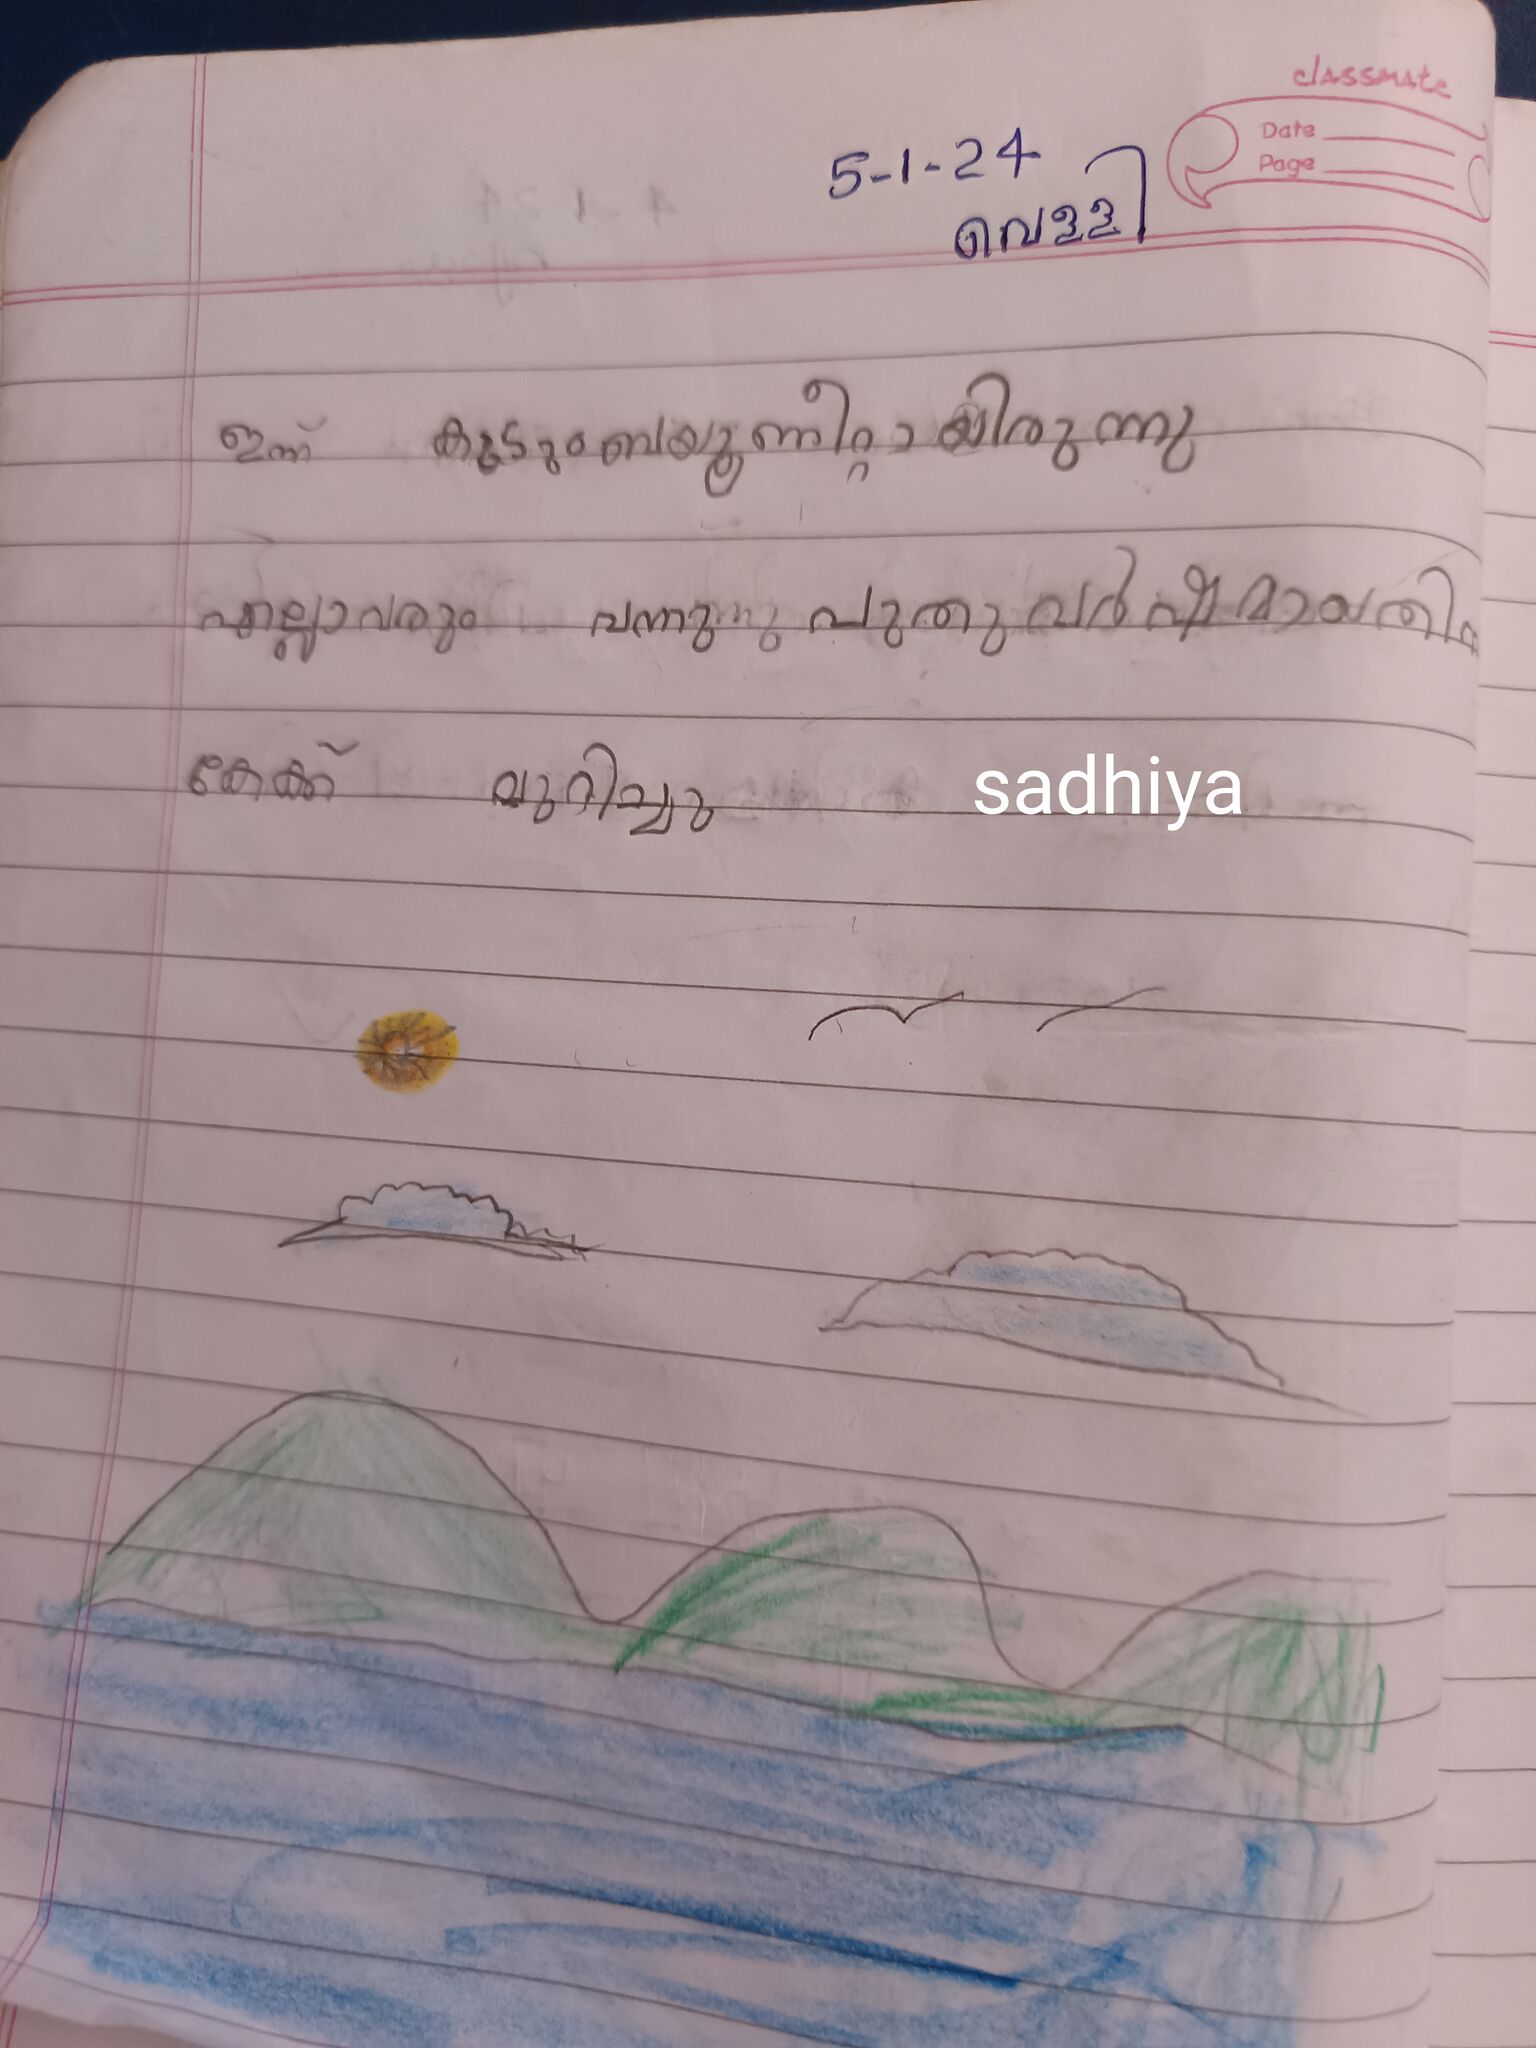 classmate
Date
Page
5-1-24
വെള്ളി
ഇന്ന് കുടുംബയൂണീറ്റായിരുന്നു
എല്ലാവരും വന്നു പുതുവർഷമായതിന
കേക്ക് മുറിച്ചു
sadhiya